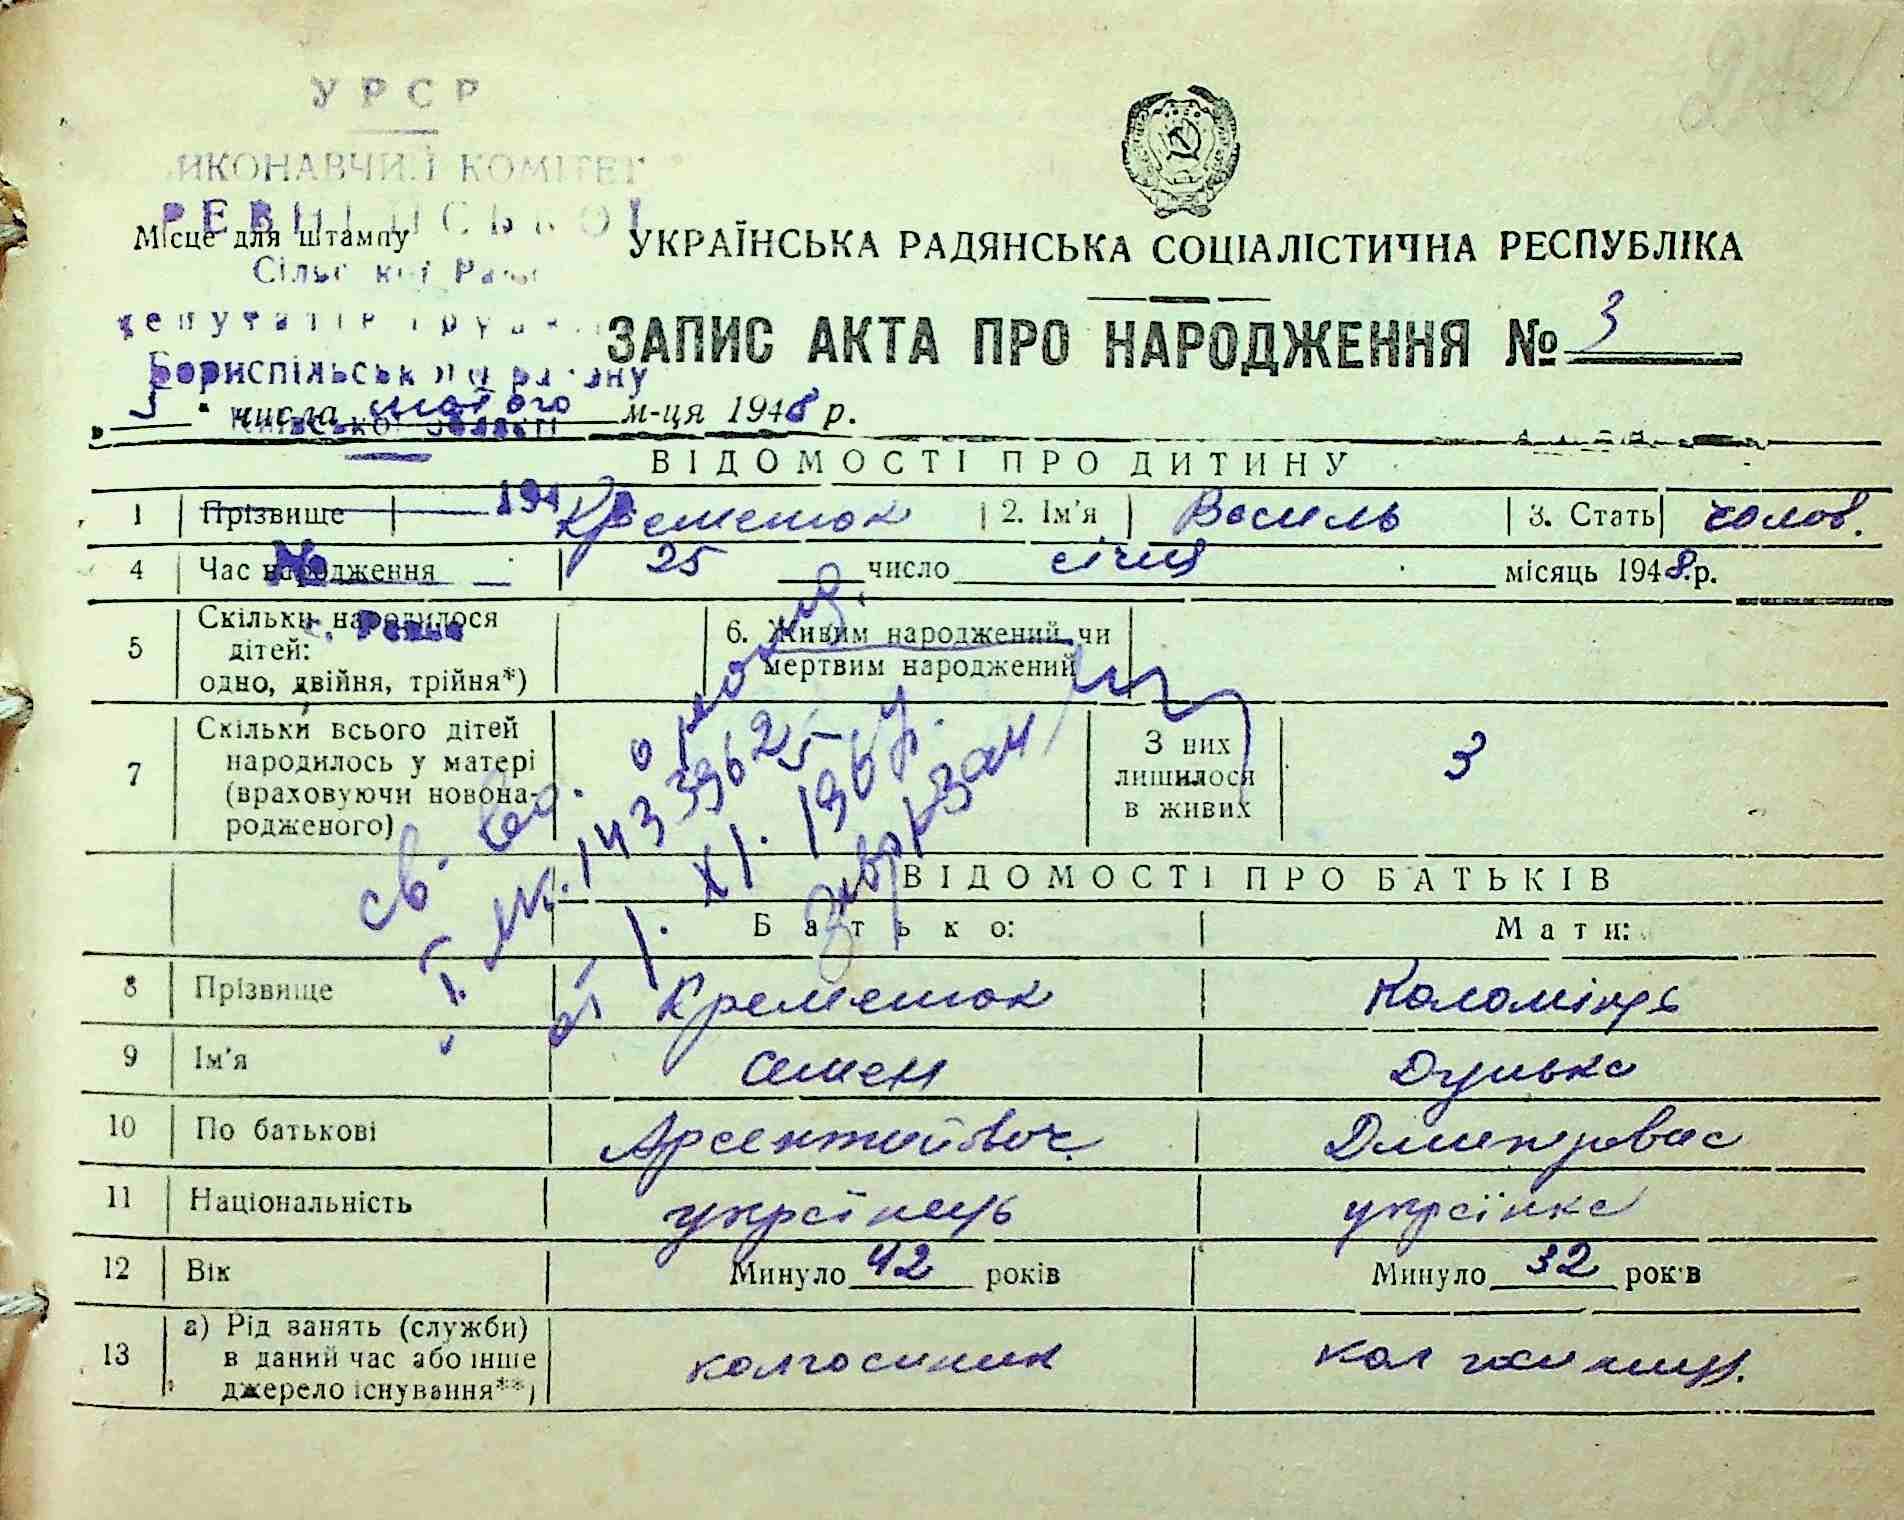 УРСР
ИКОНАВЧИЙ КОМІТЕТ
РЕВНІНСЬКОЇ
Місце для штампу
Сільської Ради
депутатів трудящих
Бориспільського району
Київської області
194
№
с. Ревне
УКРАЇНСЬКА РАДЯНСЬКА СОЦІАЛІСТИЧНА РЕСПУБЛІКА
ЗАПИС АКТА ПРО НАРОДЖЕННЯ № 3
" 5 " числа лютого м-ця 1948 р.
ВІДОМОСТІ ПРО ДИТИНУ
1 Прізвище Кременюк 2. Ім'я Василь 3. Стать чолов.
4 Час народження 25 число січня місяць 1948 р.
5 Скільки народилося дітей: одно, двійня, трійня*) 6. Живим народжений чи мертвим народжений
7 Скільки всього дітей народилось у матері (враховуючи новонародженого) З них лишилося в живих 3
св.
143 39625
1. XI. 196
ВІДОМОСТІ ПРО БАТЬКІВ
Батько: Мати:
8 Прізвище Кременюк Коломієць
9 Ім'я Семен Дунька
10 По батькові Арсентийович Дмитровна
11 Національність українець українка
12 Вік Минуло 42 років Минуло 32 років
13 а) Рід занять (служби) в даний час або інше джерело існування**) колгоспник